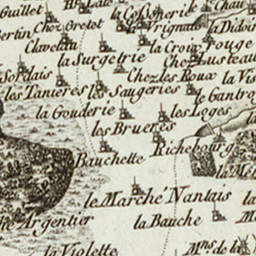 Guillet
la Cossonerie
Chau
Chez Gretet
le Vrignais
la Didois
Clavelau
la Croix rouge
la Surgetrie
Chez Lusteau
Sordais
Chez les Roux
la Vis
les Tanieres
les Saugeries
le Gantro
la Gouderie
les Loges
les Brueres
Bauchette
Richebourg
le Marché Nantais
Argentier
la Bauche
la Violette
M.ns de la